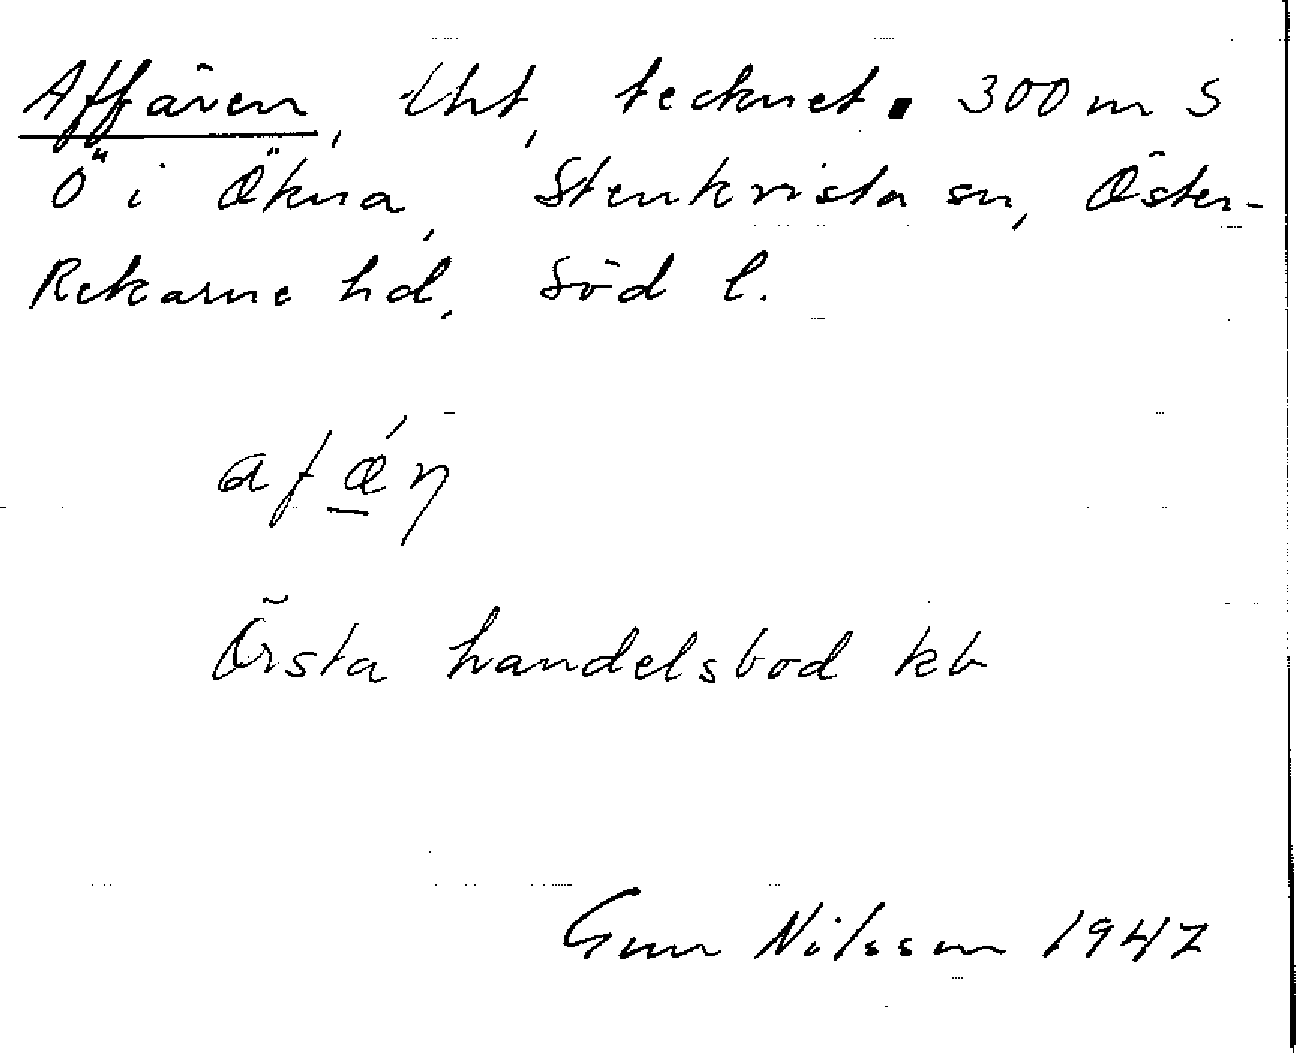 Affären, lht, tecknet ▪ 300 m S
Ö i Ökna, Stenkvista sn, Öster-
Rekarne hd, Söd l.
afǽŋ
Örsta handelsbod kb
Gun Nilsson 1947